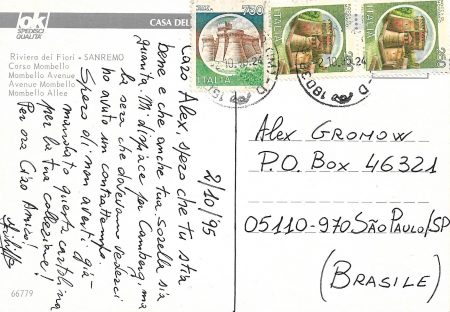 ok
SPEDISCI
QUALITA'
CASA DEL
Riviera dei Fiori • SANREMO
Corso Mombello
Mombello Avenue
Avenue Mombello
Mombello Allee
2/10/95
Caro Alex, spero che tu stia
bene e che anche tua sorella sia
guarita. Mi dispiace per Camborg, ma
la sera che dovevamo vederci
ho avuto un contrattempo.
Spero di non averti già
mandato questa cartolina
per la tua collezione!
Per ora Ciao Amico!
66779
750
ITALIA
ITALIA
ITALIA
Alex Gromow
P.O. Box 46321
05110-970 São Paulo/SP
(Brasile)